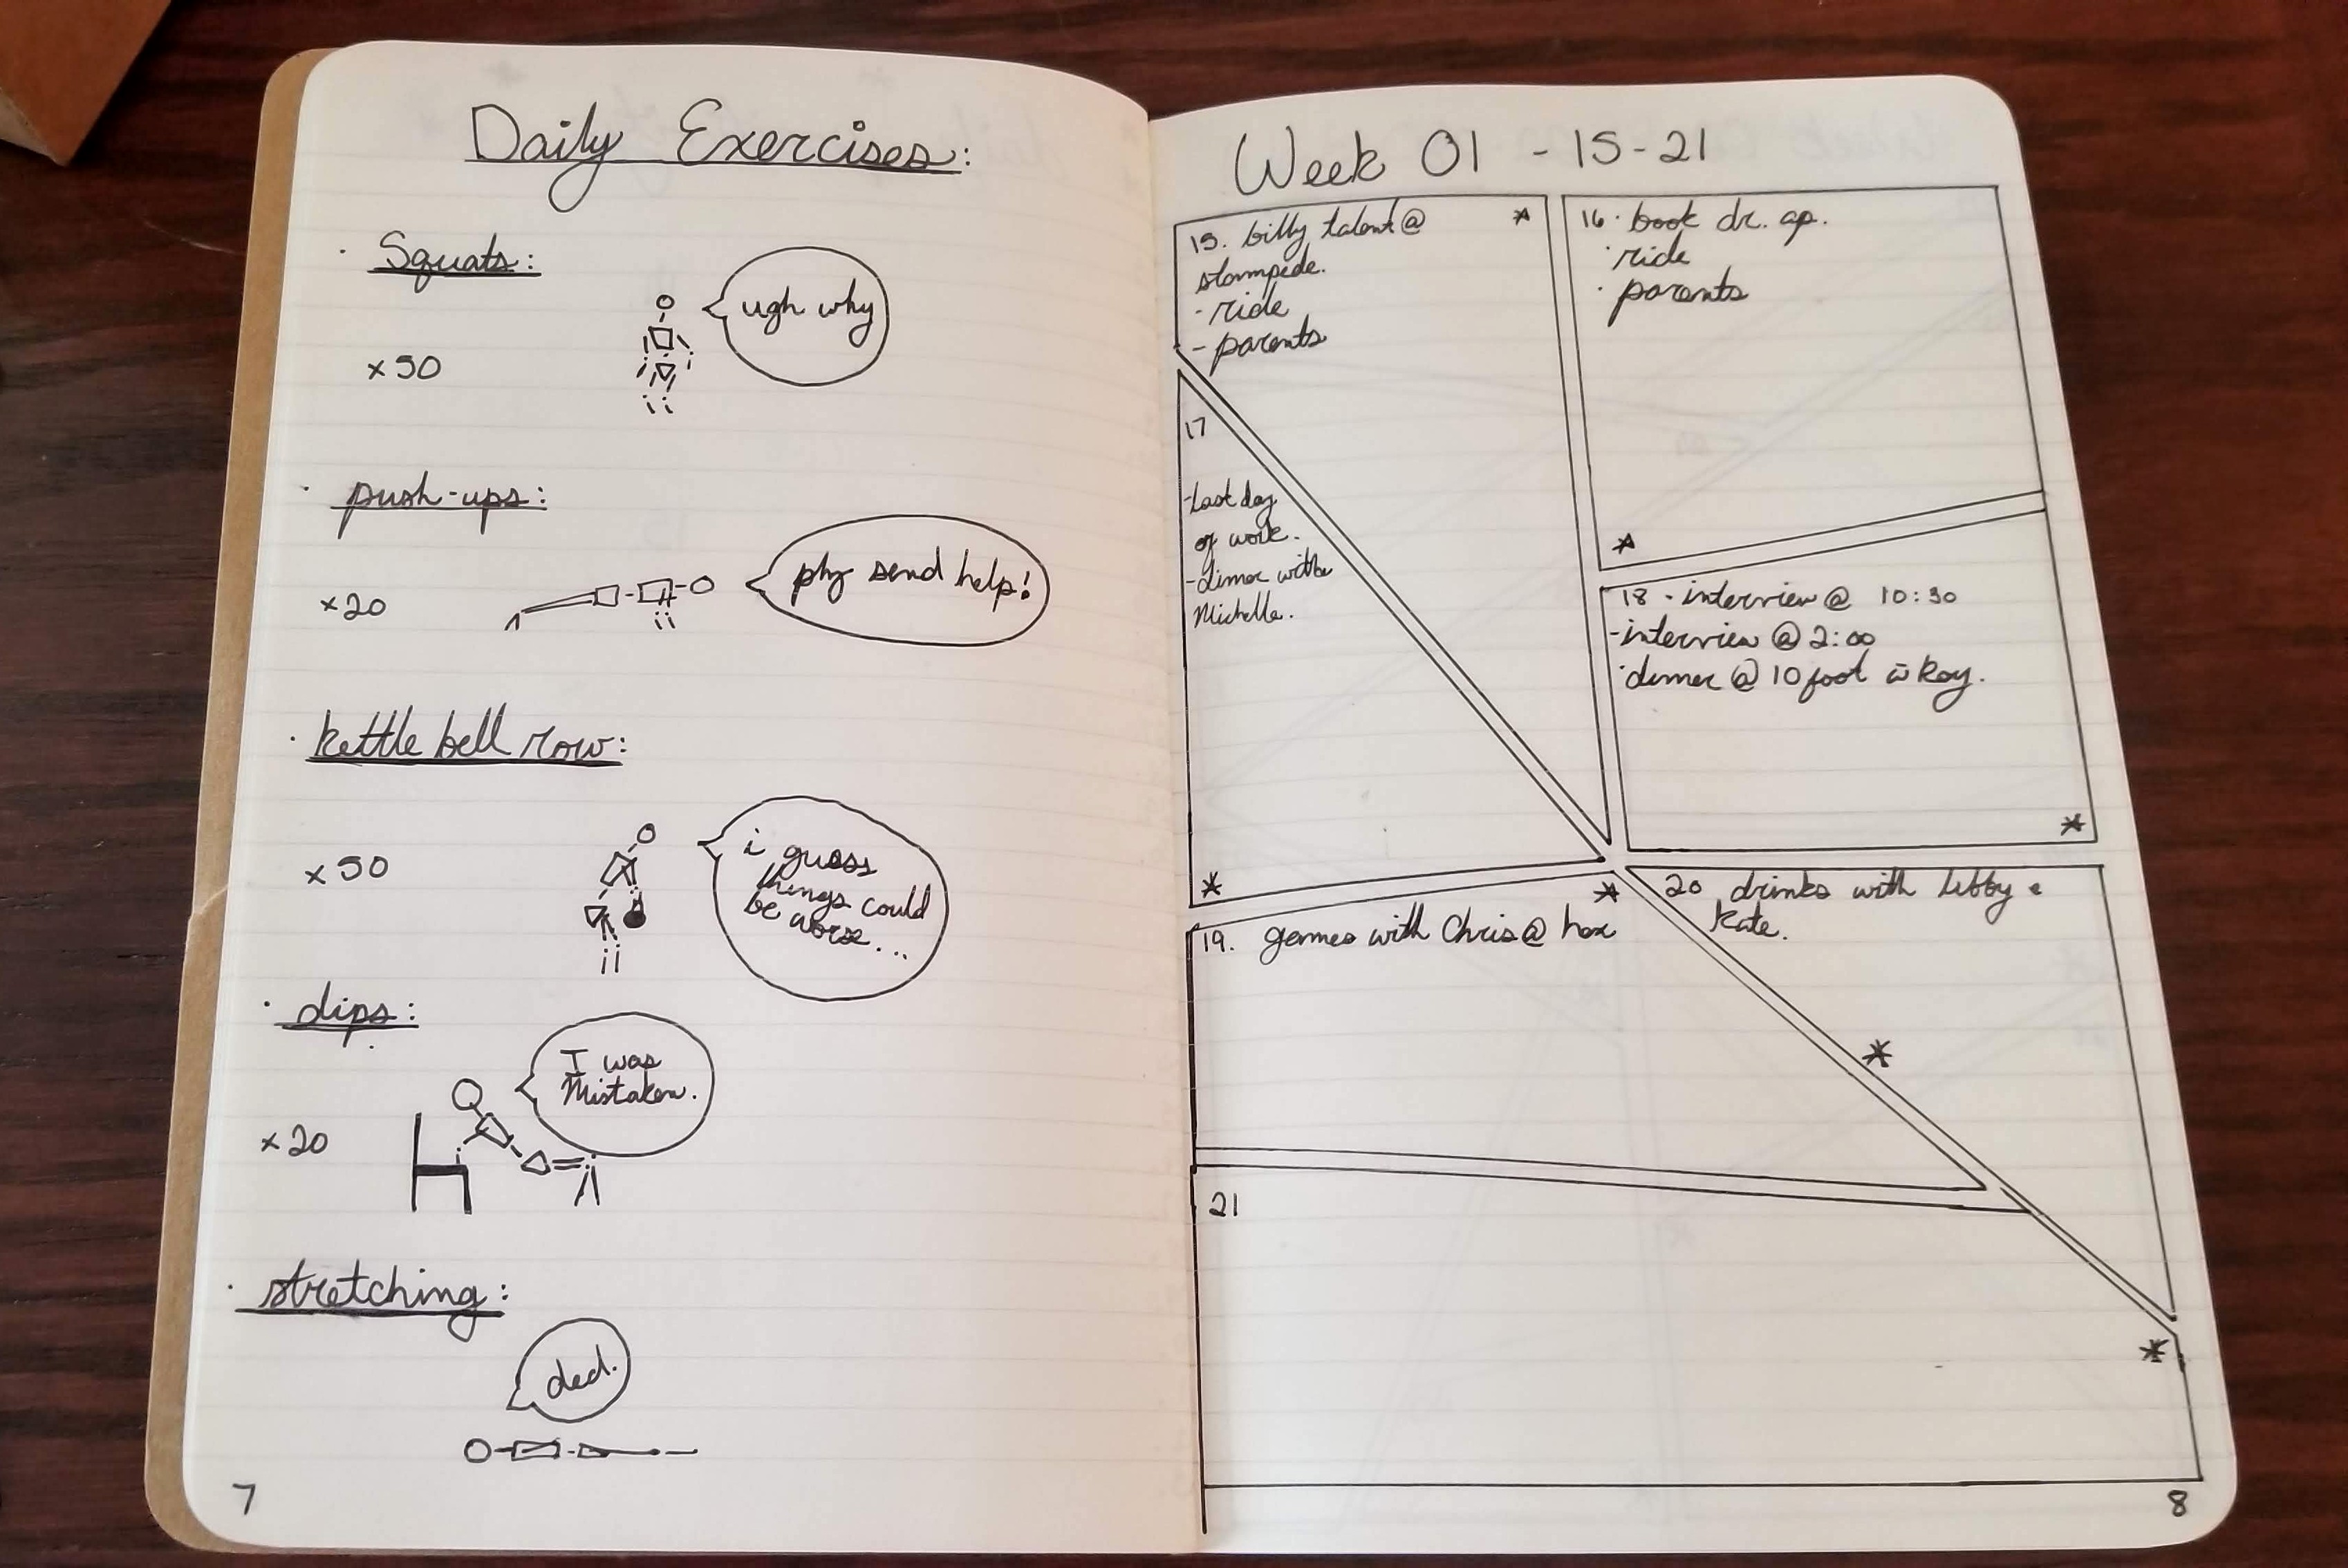 Daily Exercises:
· Squats:
ugh why
x50
· push-ups:
x20
plz send help!
· kettle bell row:
x50
i guess
things could
be worse...
· dips:
I was
Mistaken.
x20
· stretching:
ded.
7
Week 01 - 15-21
15. billy talent @
stampede.
- ride
- parents
16 · book dr. ap.
· ride
· parents
17
- Last day
of work.
- dinner with
Michelle.
18 - interview @ 10:30
- interview @ 2:00
· dinner @ 10 foot w̄
19. games with Chris @ hex
20 drinks with Libby &
Kate.
21
8